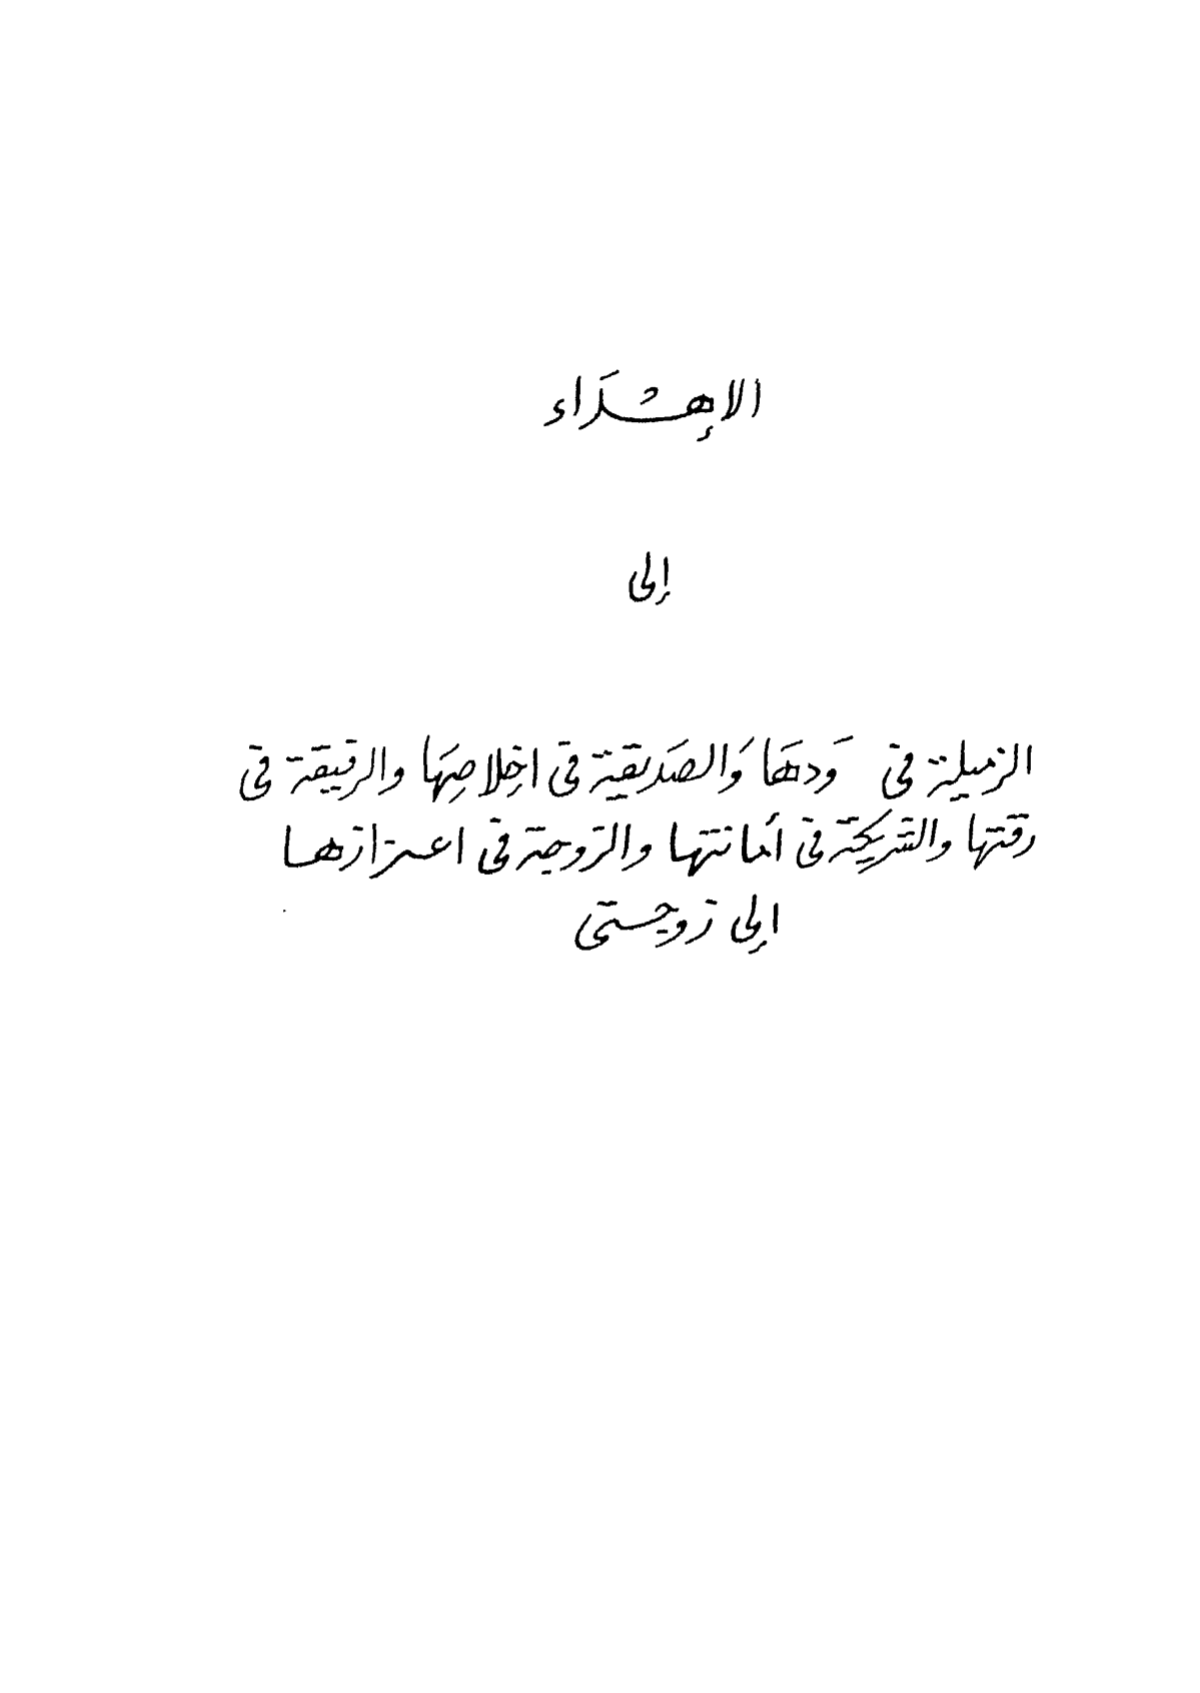 الإهْدَاء
إلى
الزميلة فى وَدهَا وَالصَديقة فى اخِلاصِهَا والرفيقة فى
رقتها والشريكة فى أمانتها والزوجة فى اعتزازها
إلى زوجتى